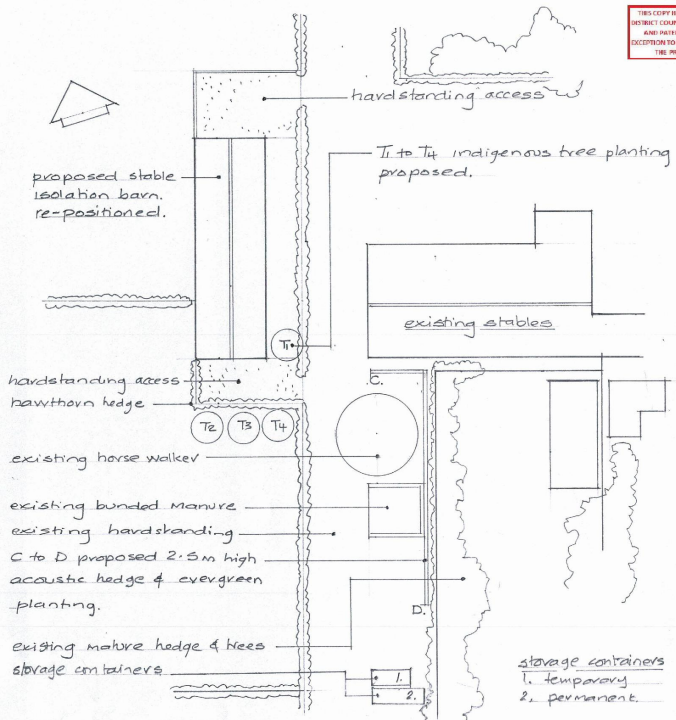 THIS COPY
DISTRICT COUN
AND PATE
EXCEPTION TO
THE PR
hardstanding access
T1 to T4 indigenous tree planting
proposed.
proposed stable
isolation barn.
re-positioned.
existing stables
T1
hardstanding access
hawthorn hedge
C.
T2 T3 T4
existing horse walker
existing bunded manure
existing hardstanding
C to D proposed 2.5m high
acoustic hedge & evergreen
planting.
D.
existing mature hedge & trees
storage containers
1.
2.
storage containers
1. temporary
2, permanent.